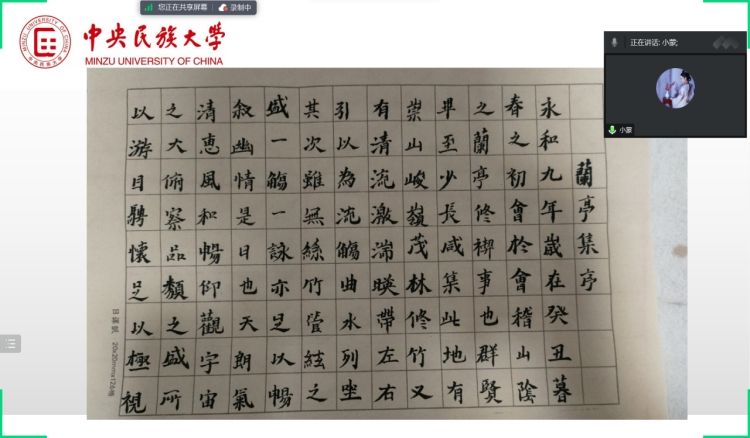 您正在共享屏幕 录制中
中央民族大学
MINZU UNIVERSITY OF CHINA
MINZU UNIVERSITY OF CHINA
正在讲话: 小蒙;
小蒙
蘭亭集亭
永和九年歲在癸丑暮
春之初會於會稽山陰
之蘭亭修禊事也群賢
畢至少長咸集此地有
崇山峻嶺茂林修竹又
有清流激湍暎帶左右
引以為流觴曲水列坐
其次雖無絲竹管絃之
盛一觴一詠亦足以暢
叙幽情是日也天朗氣
清恵風和暢仰觀宇宙
之大俯察品類之盛所
以游目騁懷足以極視
20x20mmx126格